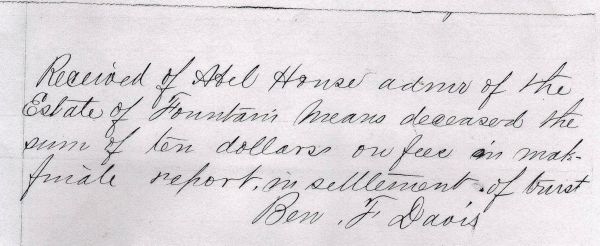 Received of Abel House admr of the
Estate of Fountain Means deceased the
sum of ten dollars on fee in mak-
finale report, in settlement of trust
Ben. F Davis